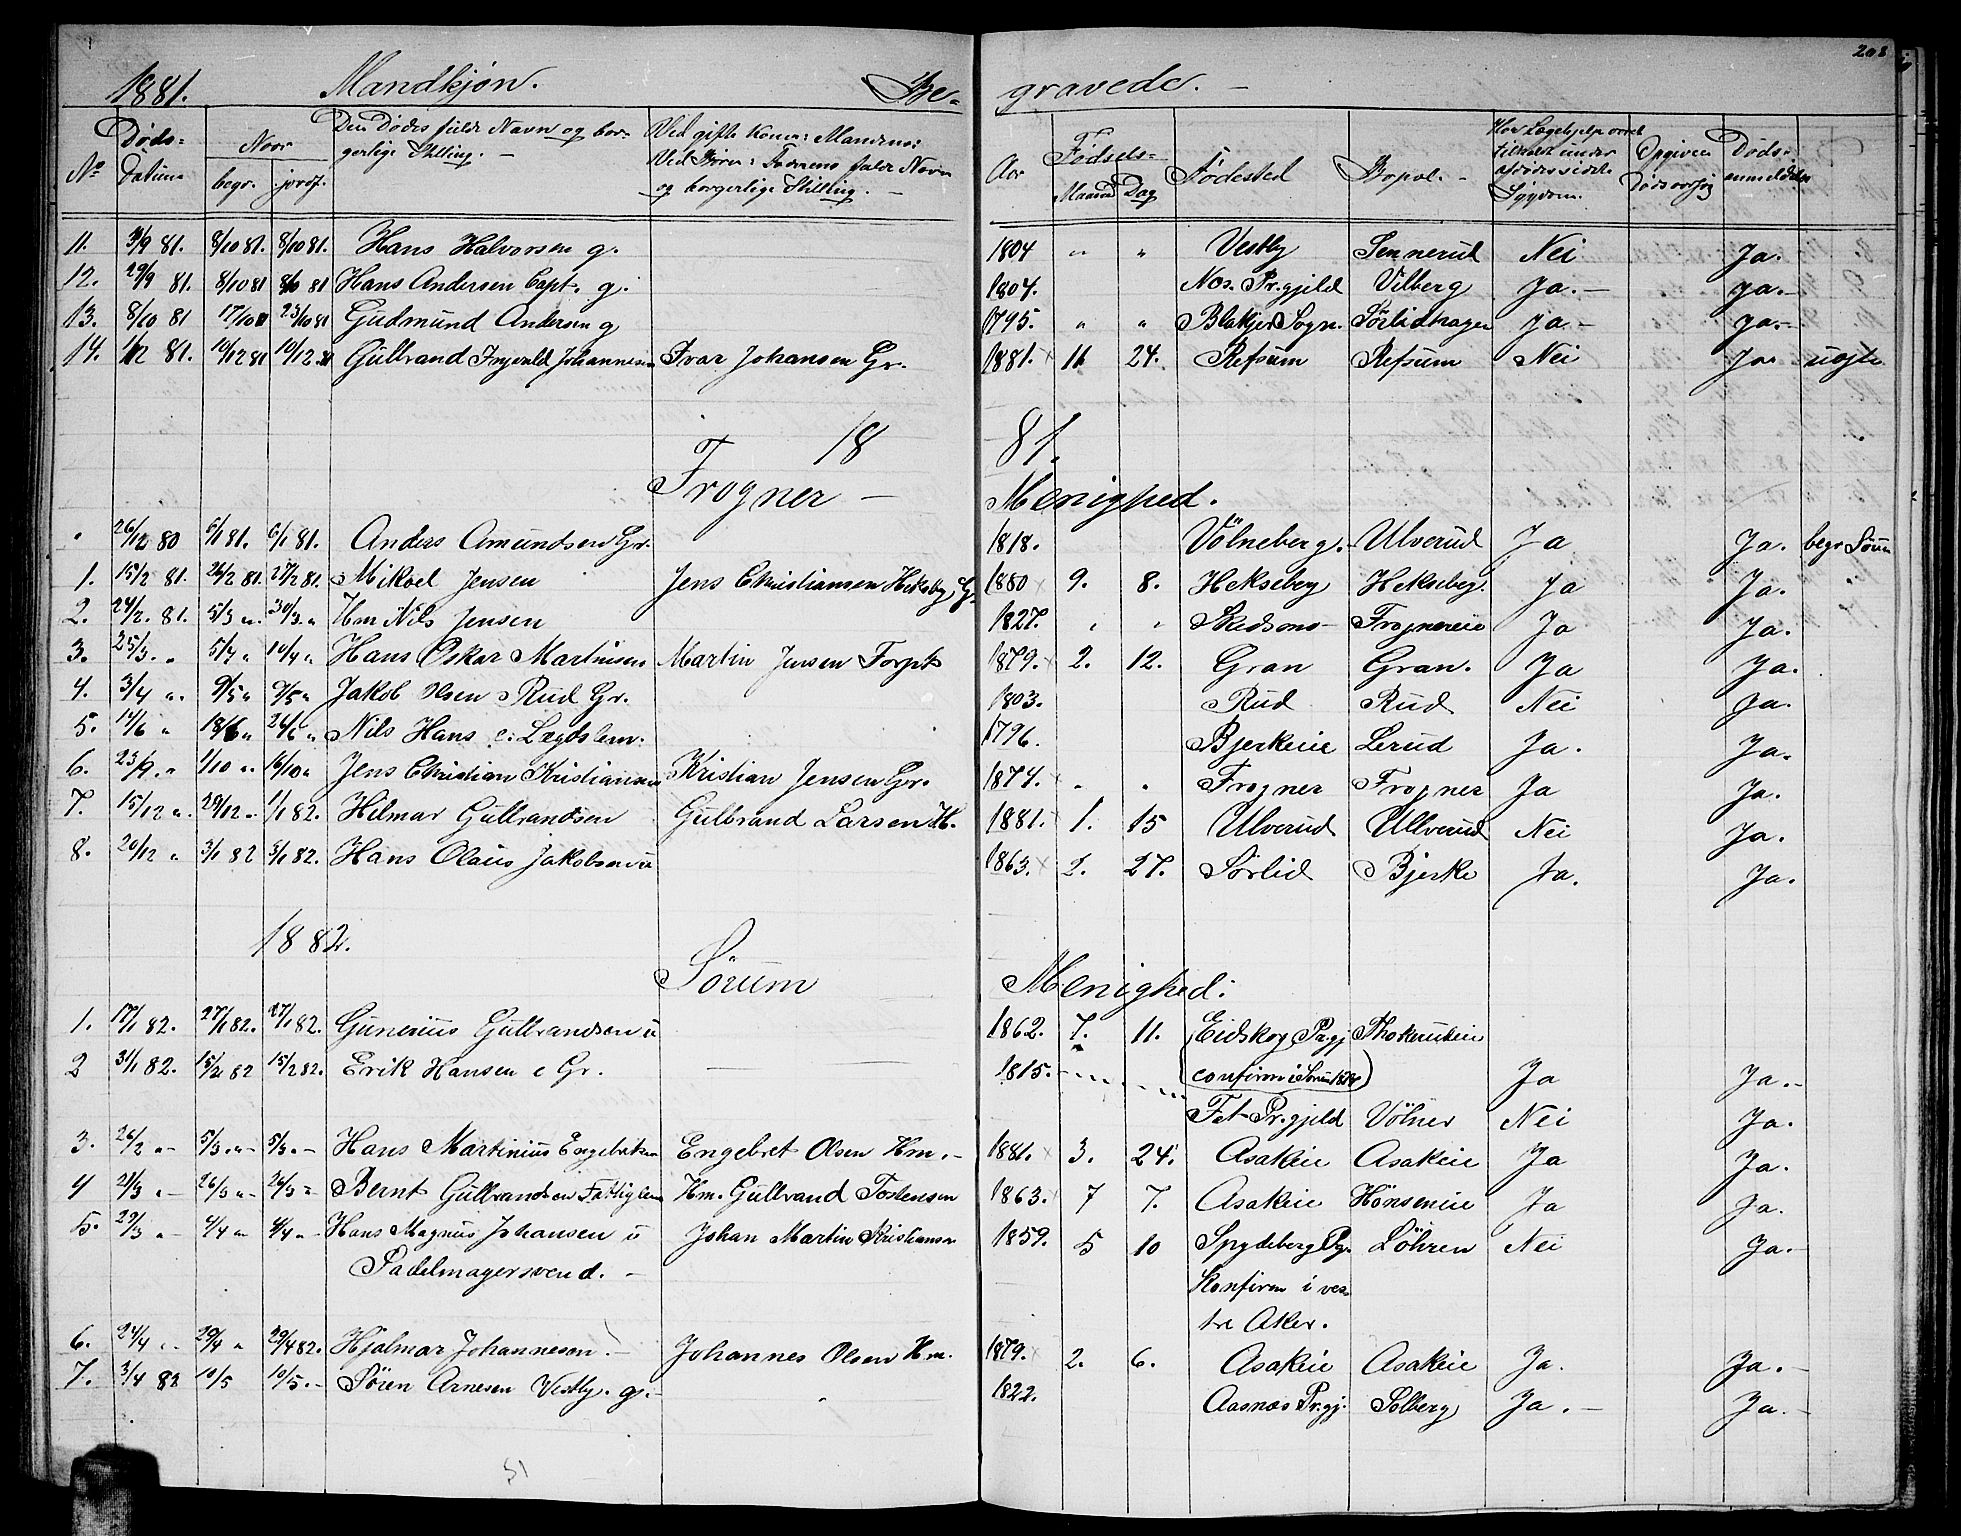 208
1881. Mandkjøn. Be- gravede. -
No Døds- Datum Naar begr. jordf. Den Dødes fulde Navn og bor- gerlige Stilling. - Ved gifte Koner: Mandens: Ved Børn: Faderens fulde Navn og borgerlige Stilling. - Aar Fødsels- Maaned Dag Fødested Bopæl. - Sygdom. Opgiven Dødsaarsag Døds- anmeldelse
11. 3/9 81. 8/10 81. 8/10 81. Hans Halvorsen g. 1804 " " Vestby Sennerud Nei Ja.
12. 29/9 81. 8/10 81 8/10 81 Hans Andersen Capt. g. 1804. Nes. Pr.gjeld Vilberg Ja. - Ja. -
13. 8/10 81 17/10 81 23/10 81 Gudmund Andersen g 1795. " " Blakjer Sogn. Sörlidhagen Ja. - Ja. -
14. 1/12 81. 10/12 81 10/12 81 Gulbrand Ingvald Johannesen Ivar Johansen Gr. 1881. 11 24. Refsum Refsum Nei Ja uegte
18 81.
Frogner - Menighed.
" 26/12 80 6/1 81. 6/1 81. Anders Amundsen Gr. 1818. Völneberg. Ulverud Ja Ja. begr Sörum
1. 15/2 81. 26/2 81. 27/2 81. Mikael Jensen Jens Christiansen Heksebg G. 1880 9. 8. Hekseberg Heksebeg. Ja Ja. "
2. 24/2. 81. 5/3 ". 30/3. " Hm Nils Jensen 1827. " " Skedsmo- Frognereie Ja Ja.
3. 25/3. " 5/4 " 10/4 " Hans Oskar Martinsen Martin Jensen Forpt 1879. 2. 12. Gran Gran. Ja Ja.
4. 3/4 ". 9/5 " 9/5 " Jakob Olsen Rud Gr. 1803. Rud Rud Nei Ja.
5. 14/6 " 18/6 " 24/6 " Nils Hans e: Lægdslem. 1796. Bjerkeie Lerud Ja. Ja.
6. 23/9. " 1/10 ". 16/10 " Jens Christian Kristiansen Kristian Jensen Gr. 1874. " " Frogner Frogner Ja Ja.
7. 15/12 ". 29/12 ". 1/1 82. Hilmar Gulbrandsen Gulbrand Larsen H. 1881. 1. 15 Ulverud Ullverud Nei Ja.
8. 20/12 " 3/1 82 3/1 82. Hans Olaus Jakobsen u 1863. 2. 27. Sörlid Bjerke Ja. Ja.
1882.
Sörum Menighed:
1. 17/1 82. 27/1 82. 27/1 82. Gunerius Gulbrandsen u 1862. 7. 11. Eidskog Pr.gj
(confirm i Sörum 1876) Ja Ja. -
2 31/1 82. 15/2 82 15/2 82. Erik Hansen e Gr. 1815. Fet Pr.gjeld Völner Nei Ja.
3. 26/2 " - 5/3 ". - 5/3. - Hans Martinius Engebretsen Engebret Olsen Hm. - 1881. 3. 24. Asakeie Asakeie Ja Ja.
4 21/3 ". - 26/3 ". - 26/3 " Bernt Gulbrandsen Fattiglem Hm. Gulbrand Tostensen 1863. 7 7. Asakeie Hönseneie Ja Ja.
5. 29/3 " - 4/4 " 4/4 " Hans Magnus Johansen u Johan Martin Kristiansen 1859. 5 10 Spydeberg Pg. Löhren Nei Ja. -
Sadelmagersvend. - Konfirm i ves-
tre Aker.
6. 24/4 " 29/4 " 29/4 82. Hjalmar Johannesen. - Johannes Olsen Hm. 1879. 2. 6. Asakeie Asakeie Ja. Ja. -
7. 3/4 82 10/5 10/5. - Sören Arnesen Vestby. g. - " 1822. Aasnæs Pr.gj. Solberg Ja. - Ja. -
51